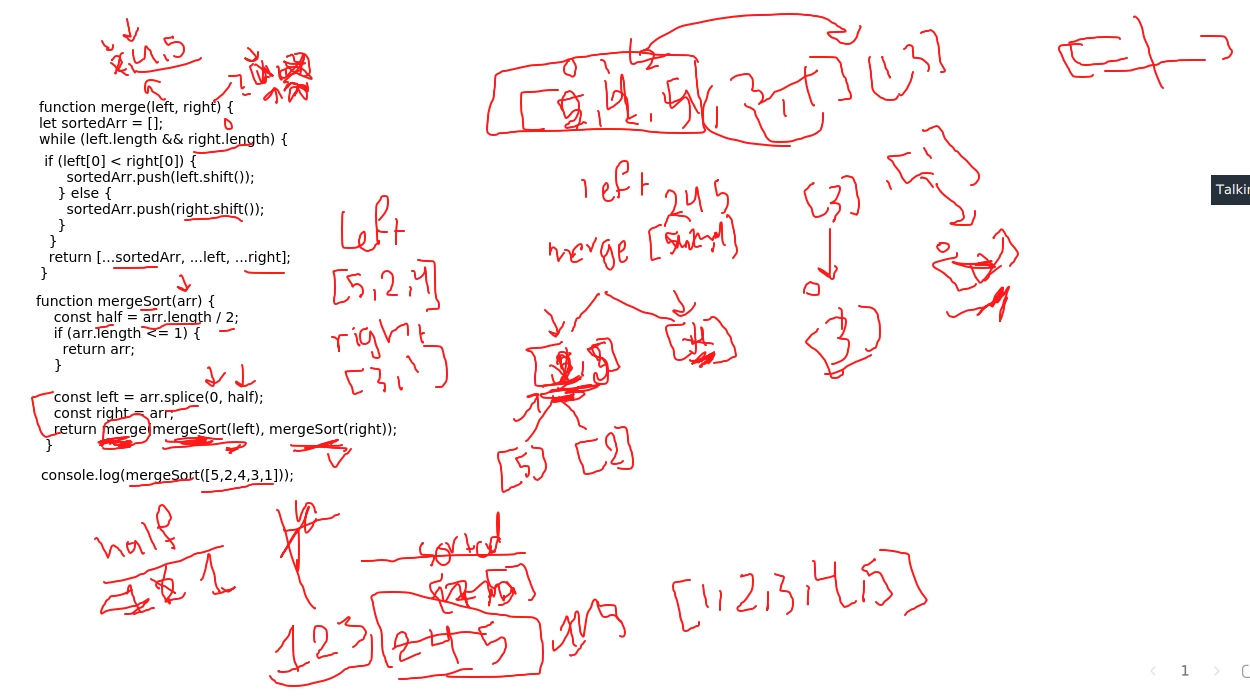 2,4,5
function merge(left, right) {
let sortedArr = [];
0
while (left.length && right.length) {
if (left[0] < right[0]) {
sortedArr.push(left.shift());
} else {
sortedArr.push(right.shift());
}
}
return [...sortedArr, ...left, ...right];
}
function mergeSort(arr) {
const half = arr.length / 2;
if (arr.length <= 1) {
return arr;
}
const left = arr.splice(0, half);
const right = arr;
return merge(mergeSort(left), mergeSort(right));
}
console.log(mergeSort([5,2,4,3,1]));
left
[5,2,4]
right
[3,1]
0 1 2
left
245
merge
[3]
0
[3]
0
[5] [2]
half
1
sorted
1 2 3
2 4 5
[1,2,3,4,5]
Talkin
1